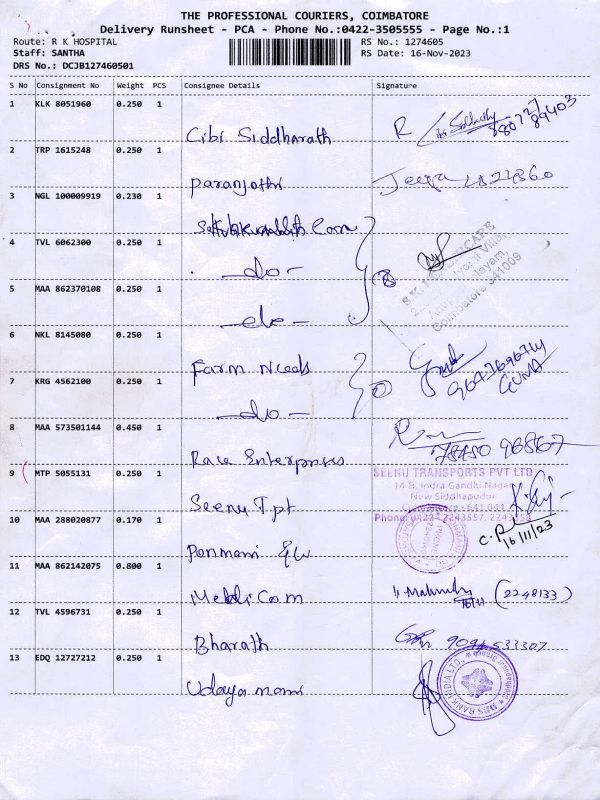 THE PROFESSIONAL COURIERS, COIMBATORE
Delivery Runsheet - PCA - Phone No.:0422-3505555 - Page No.:1
Route: R K HOSPITAL
RS No.: 1274605
Staff: SANTHA
RS Date: 16-Nov-2023
DRS No.: DCJB127460501
S No Consignment No Weight PCS Consignee Details Signature
1 KLK 8051960 0.250 1
Cibi Siddharath
2 TRP 1615248 0.250 1
Paranjothi
3 NGL 100009919 0.230 1
4 TVL 6062300 0.250 1
- do -
5 MAA 862370108 0.250 1
- do -
Coimbatore 341009
6 NKL 8145080 0.250 1
Farm Needs
7 KRG 4562100 0.250 1
- do -
8 MAA 573501144 0.450 1
Race Enterprises
9 MTP 5055131 0.250 1
SEENU TRANSPORTS PVT LTD
14-B, Indra Gandhi Nagar
New Siddhapudur
Seenu Tpt
10 MAA 288020877 0.170 1
16/11/23
Ponmani
11 MAA 862142075 0.800 1
Medicom
(2248133)
12 TVL 4596731 0.250 1
Bharath
13 EDQ 12727212 0.250 1
Udaya mami
DBS BANK INDIA LTD.